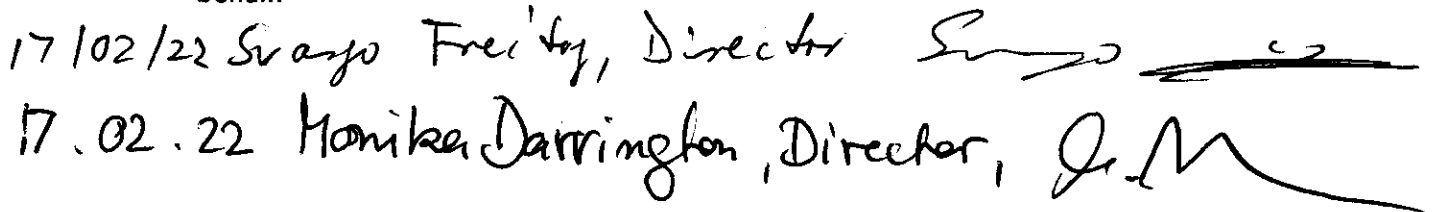 17/02/22 Svanjo Freitag, Director
17.02.22 Monika Darrington, Director,